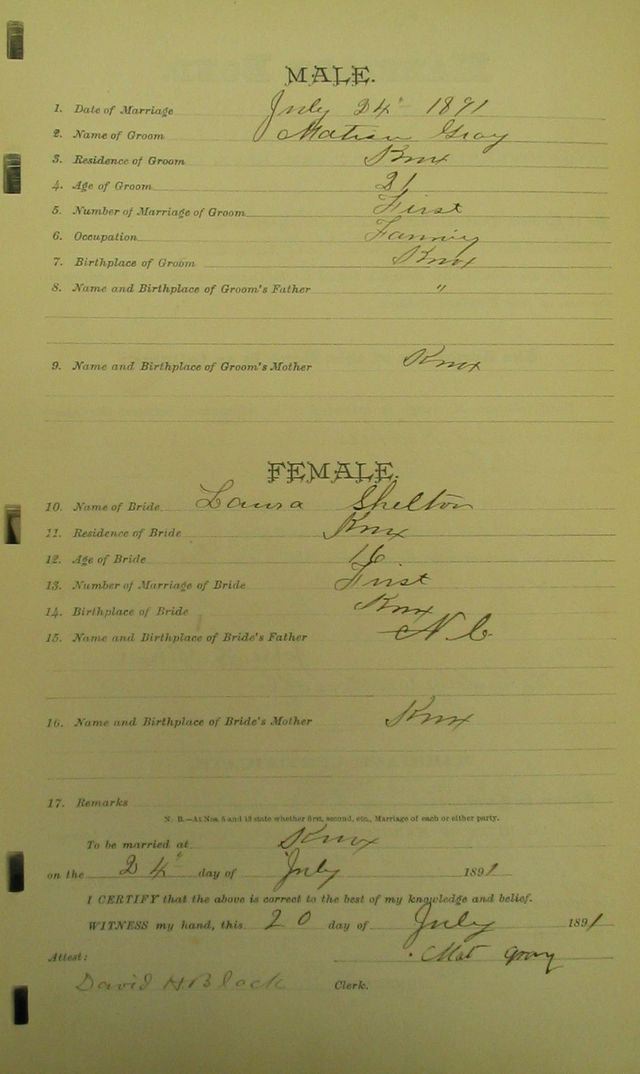 MALE.
1. Date of Marriage July 24" 1891
2. Name of Groom Gray
3. Residence of Groom Knox
4. Age of Groom 21
5. Number of Marriage of Groom First
6. Occupation
7. Birthplace of Groom Knox
8. Name and Birthplace of Groom's Father "
9. Name and Birthplace of Groom's Mother Knox
FEMALE.
10. Name of Bride Laura Shelton
11. Residence of Bride Knox
12. Age of Bride 16
13. Number of Marriage of Bride First
14. Birthplace of Bride Knox
15. Name and Birthplace of Bride's Father N C
16. Name and Birthplace of Bride's Mother Knox
17. Remarks
N. B.—At Nos. 5 and 13 state whether first, second, etc., Marriage of each or either party.
To be married at Knox
on the 24" day of July 1891
I CERTIFY that the above is correct to the best of my knowledge and belief.
WITNESS my hand, this 20 day of July 1891
Attest: Mat Gray
David H Black Clerk.